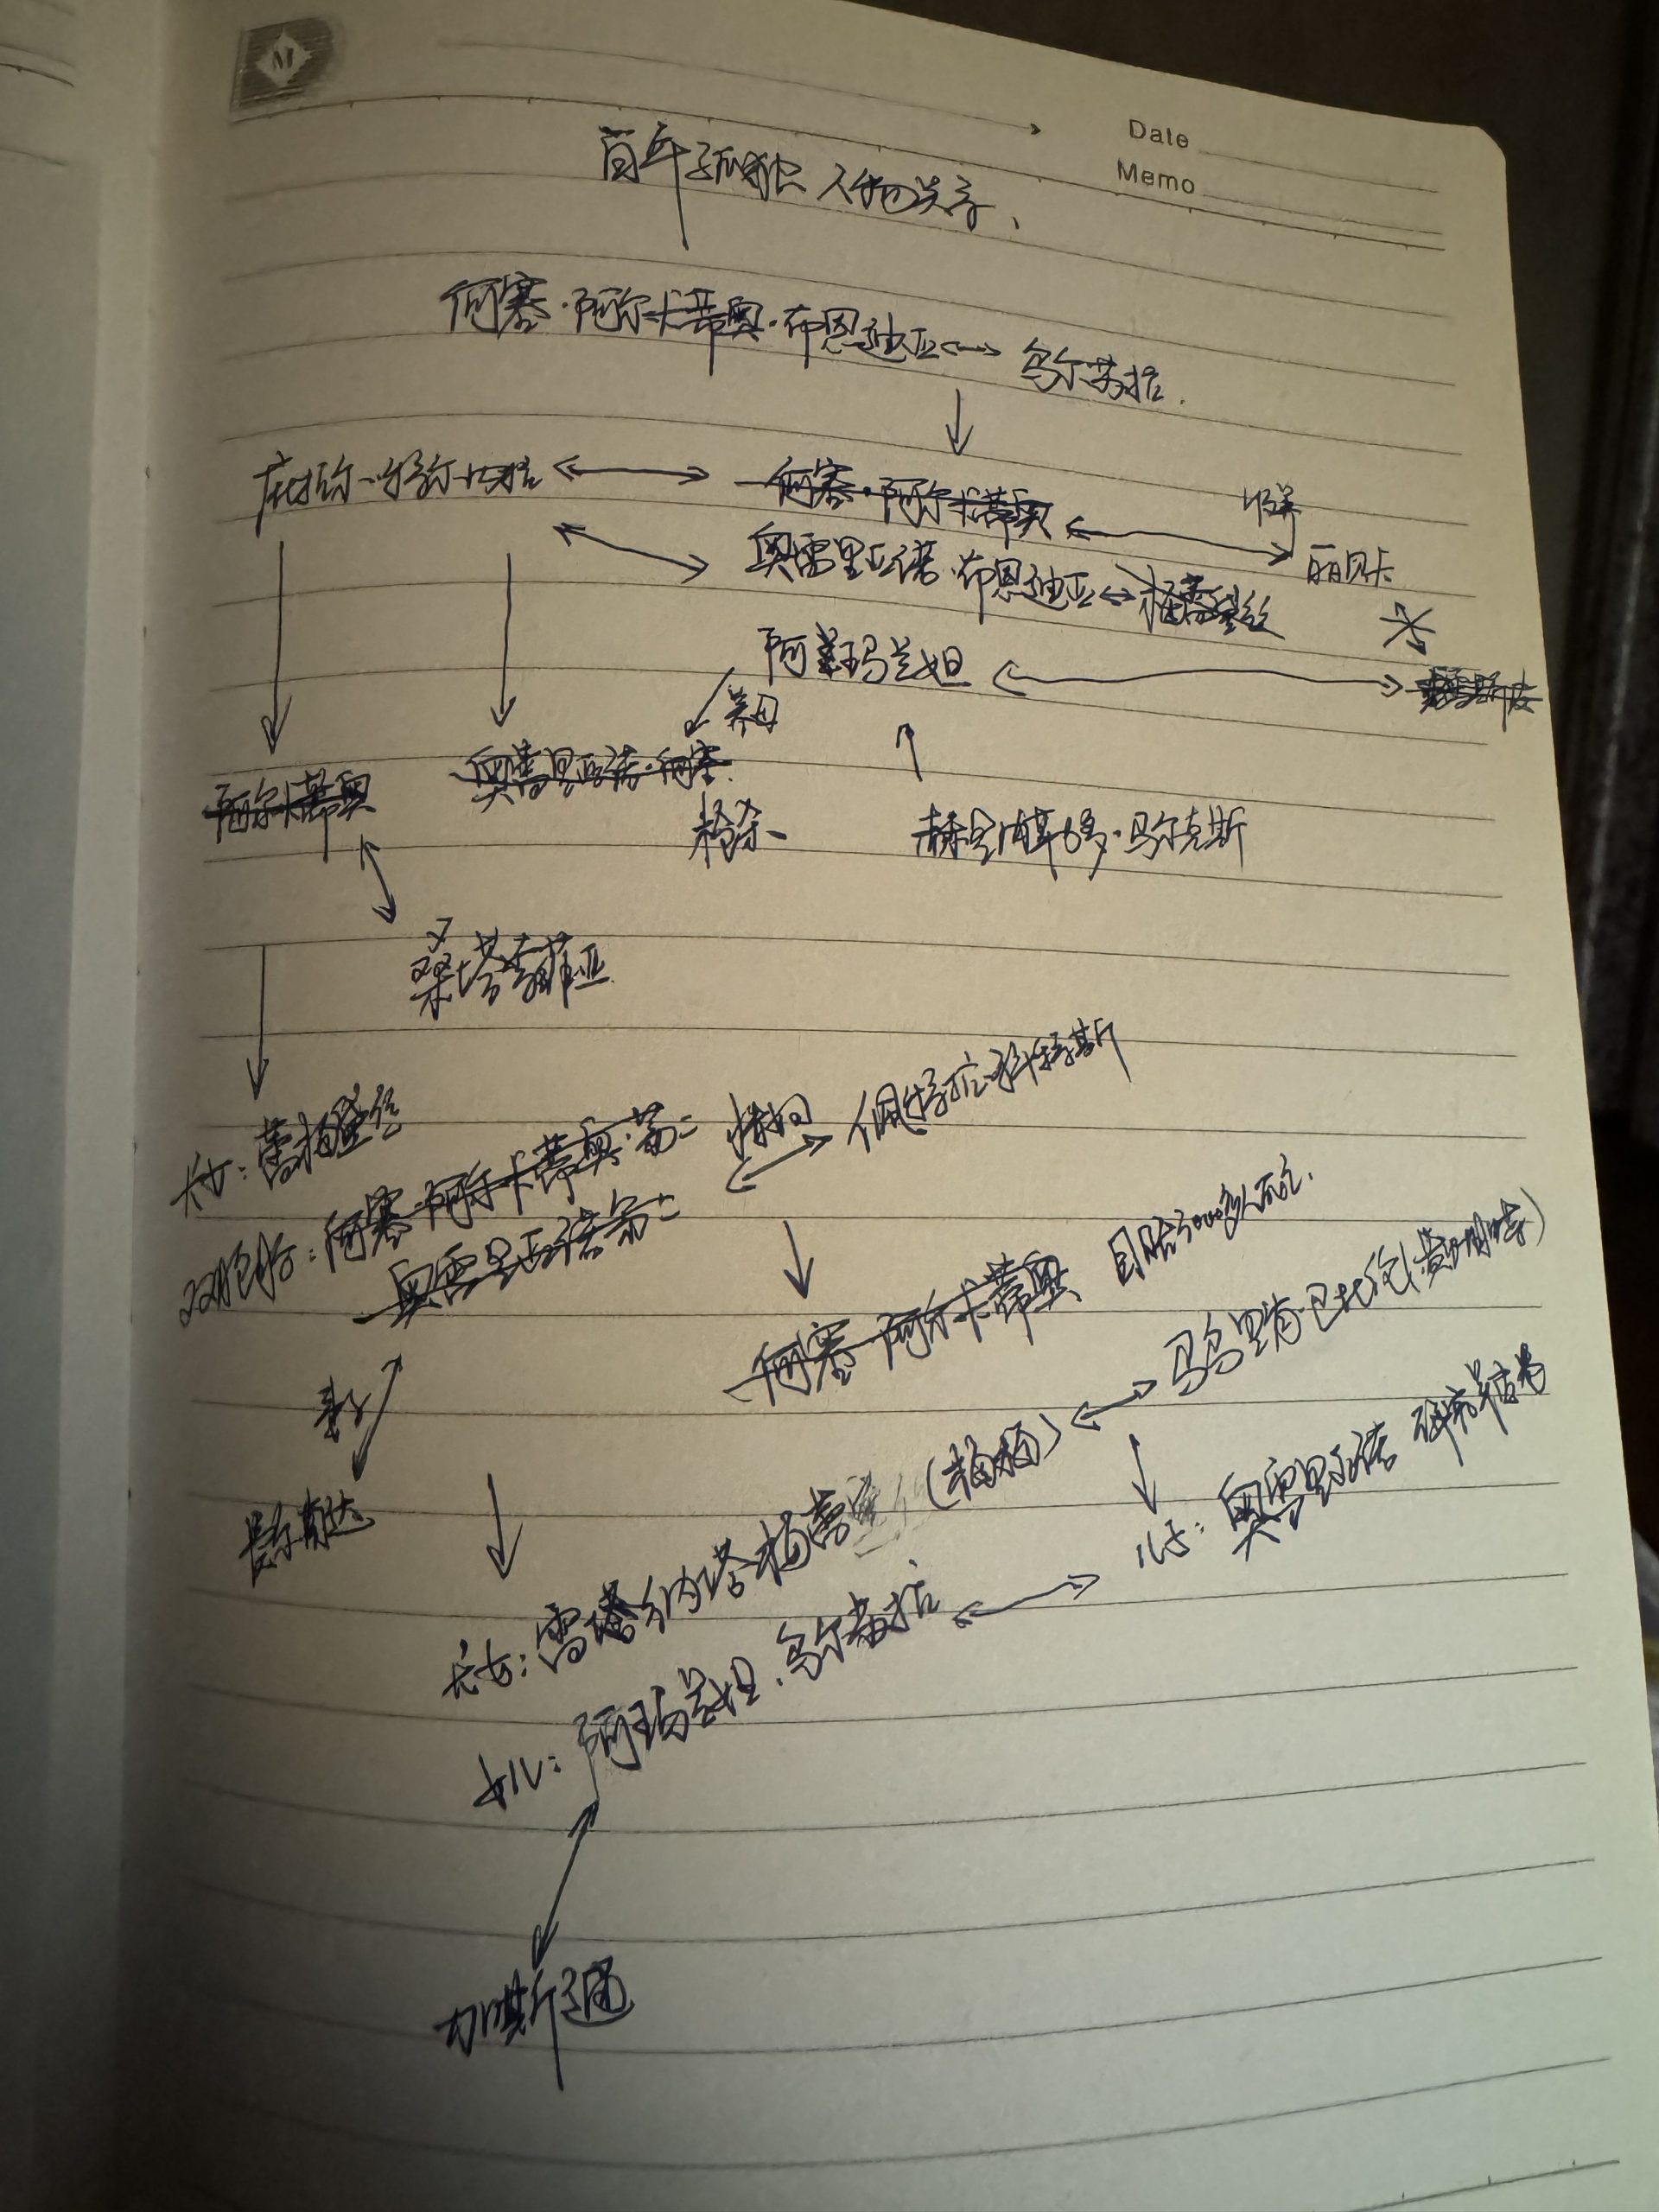 M
Date
Memo
百年孤独 人物关系、
何塞·阿尔卡蒂奥·布恩迪亚 乌尔苏拉.
何塞·阿尔卡蒂奥
收养
丽贝卡
奥雷里亚诺·布恩迪亚
阿莱玛兰妲
养母
阿尔卡蒂奥
奥雷里亚诺·何塞.
枪杀
赫里内勒多·马尔克斯
桑塔索菲亚
长女: 蕾梅黛丝
双胞胎: 何塞 阿尔卡蒂奥·第二 情妇 佩特拉·科特斯
奥雷里亚诺第二
何塞 阿尔卡蒂奥 目睹3000多人死亡.
妻子
长女: 雷塔纳塔梅蕾 (梅梅) 马乌里肖·巴比伦(黄蝴蝶)
儿子: 奥雷里亚诺
女儿: 阿玛兰妲.乌尔苏拉
加斯通